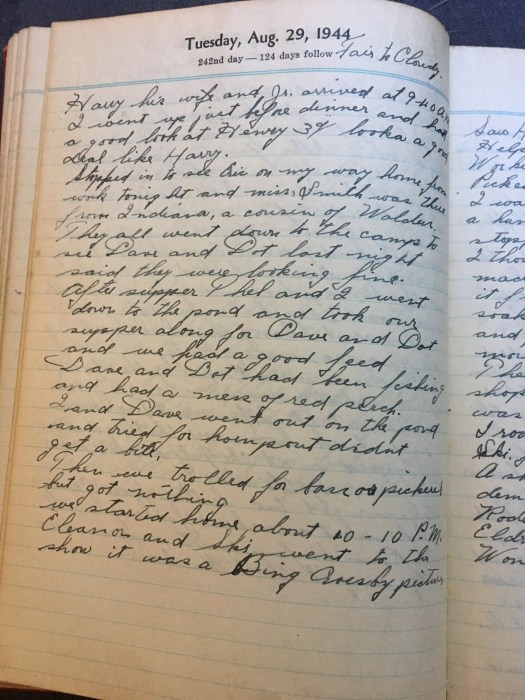 Tuesday, Aug. 29, 1944
242nd day — 124 days follow Fair to Cloudy.
Harry his wife and Jr. arrived at 9-40 A.M.
I went up just before dinner and had
a good look at Henry 3d looks a good
deal like Harry.
Stopped in to see Eric on my way home from
work tonight and miss Smith was there
from Indiana, a cousin of
They all went down to the camp to
see Dave and Dot last night
said they were looking fine.
After supper Phel and I went
down to the pond and took our
supper along for Dave and Dot
and we had a good feed
Dave and Dot had been fishing
and had a mess of red perch.
I and Dave went out on the pond
and tried for hornpout didnt
get a bite,
Then we trolled for bass or pickerel
but got nothing
we started home about 10-10 P.M.
Eleanor and Ski went to the
show it was a Bing Crosby picture
Saw H
Helpe
Picke
I wa
a han
steps
I tho
mac
it f
soak
and
mor
The
shop
was
I roo
Ski.
A s
dem
Rod
Eldr
Won